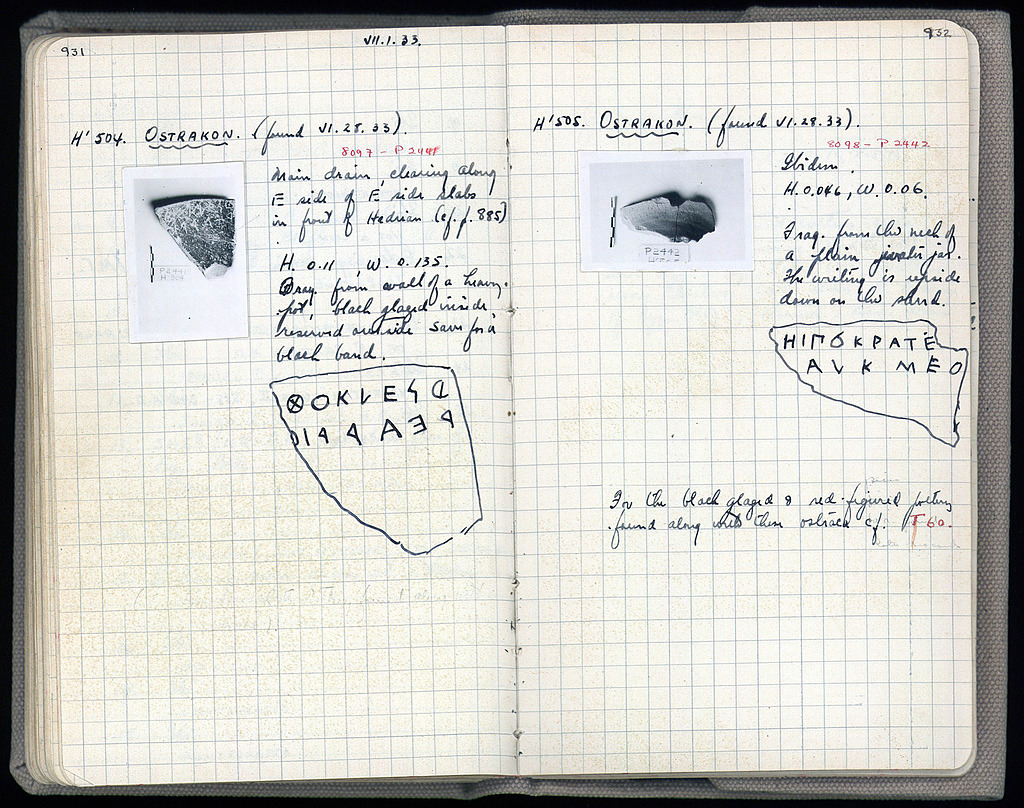 931
VII.1.33.
H'504. OSTRAKON. (found VI.28.33).
8097 - P 2441
Main drain, clearing along
E side of E side slabs
in front of Hadrian (cf. p. 885)
P2441
H. 0.11, W. 0.135.
Frag. from wall of a heavy
pot, black glazed inside,
reserved outside save for a
black band.
ΟΚΛΕ
932
H'505. OSTRAKON. (found VI.28.33).
8098 - P 2442
Ibidem.
H. 0.046, W. 0.06.
P2442
Frag. from the neck of
a plain jar.
The writing is upside
down on the sherd.
ΗΙΠΟΚΡΑΤΕ
ΑΛΚΜΕΟ
For the black glazed & red-figured pottery
found along with these ostraca cf. 60.